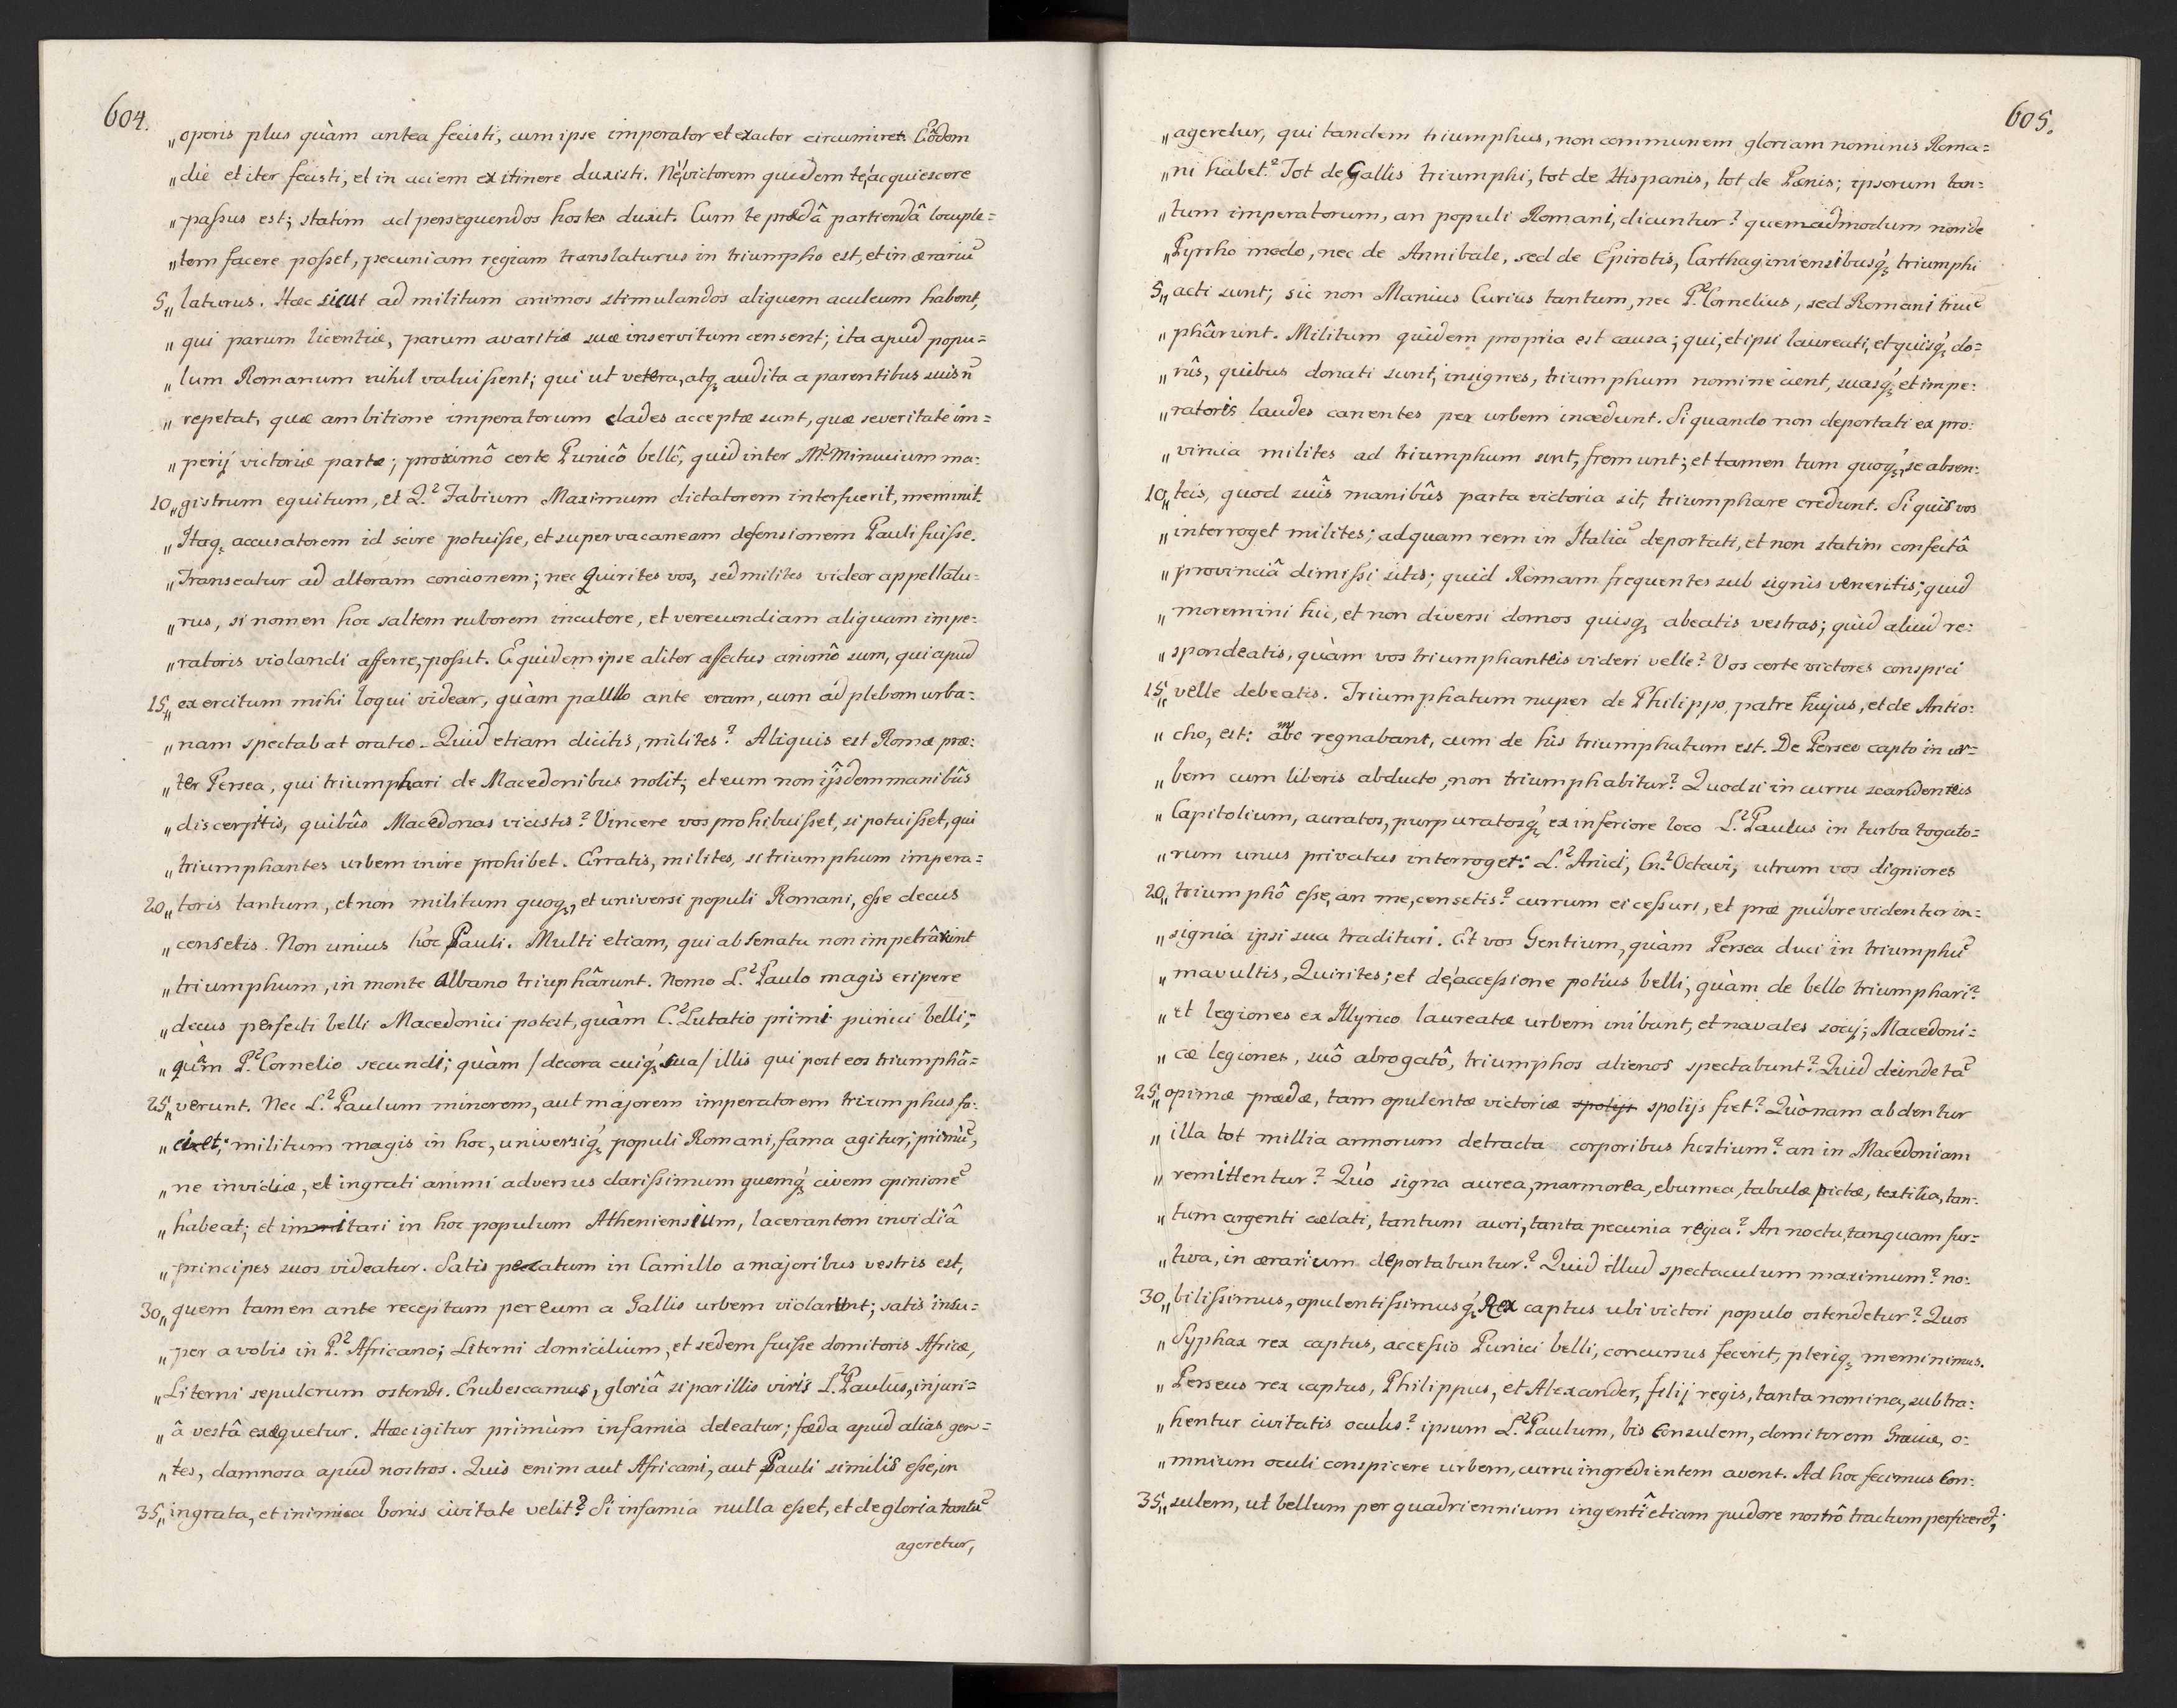 604.
„operis plus quàm antea fecisti, cum ipse imperator et exactor circumiret. Eodem
„die et iter fecisti, et in aciem ex itinere duxisti. Ne victorem quidem te acquiescere
„passus est; statim ad persequendos hostes duxit. Cum te prædâ partiendâ locuple=
„tem facere posset, pecuniam regiam translaturus in triumpho est, et in ærariū
5„ laturus. Hæc sicut ad militum animos stimulandos aliquem aculeum habent,
„ qui parum licentiæ, parum avaritiæ suæ inservitum censent; ita apud popu=
„ lum Romanum nihil valuissent; qui ut vetera, atq; audita a parentibus suis ñ
„ repetat, quæ ambitione imperatorum clades acceptæ sunt, quæ severitate im=
„ perij victoriæ partæ; proximô certe Punicô bellô, quid inter M. Minucium ma=
10„gistrum equitum, et Q.² Fabium Maximum dictatorem interfuerit, meminit.
„Itaq; accusatorem id scire potuisse, et supervacaneam defensionem Pauli fuisse.
„Transeatur ad alteram concionem; nec Quirites vos, sed milites videor appellatu=
„rus, si nomen hoc saltem ruborem incutere, et verecundiam aliquam impe=
„ratoris violandi afferre, possit. Equidem ipse aliter affectus animô sum, qui apud
15„ exercitum mihi loqui videar, quàm paullo ante eram, cum ad plebem urba=
„nam spectabat oratio. Quid etiam dicitis, milites? Aliquis est Romæ præ=
„ter Persea, qui triumphari de Macedonibus nolit; et eum non ijsdem manibûs
„discerpitis, quibûs Macedonas vicistis? Vincere vos prohibuisset, si potuisset, qui
„triumphantes urbem inire prohibet. Erratis, milites, si triumphum impera=
20„ toris tantum, et non militum quoq;, et universi populi Romani, esse decus
„censetis. Non unius hoc Pauli. Multi etiam, qui ab Senatu non impetrârunt
„triumphum, in monte Albano triuphârunt. Nemo L.² Paulo magis eripere
„decus perfecti belli Macedonici potest, quàm C.² Lutatio primi punici belli;
„ quàm P.² Cornelio secundi; quàm /decora cuiq; sua/ illis qui post eos triumphâ=
25„verunt. Nec L.² Paulum minorem, aut majorem imperatorem triumphus fa=
„ciet; militum magis in hoc, universiq; populi Romani, fama agitur; primū,
„ne invidiæ, et ingrati animi adversus clarissimum quemq; civem opinionē
„habeat; et imitari in hoc populum Atheniensium, lacerantem invidiâ
„principes suos videatur. Satis peccatum in Camillo a majoribus vestris est,
30„ quem tamen ante receptam per eum a Gallis urbem violarunt; satis insu=
„per a vobis in P.² Africano; Literni domicilium, et sedem fuisse domitoris Africæ,
„Literni sepulcrum ostendi. Erubescamus, gloriâ si par illis viris L.² Paulus, injuri=
„â vestâ exæquetur. Hæc igitur primùm infamia deleatur; fæda apud alias gen=
„tes, damnosa apud nostros. Quis enim aut Africani, aut Pauli similis esse, in
35„ingrata, et inimica bonis civitate velit? Si infamia nulla esset, et de gloria tantū
agoretur,
605.
„agerelur, qui tandem triumphus, non communem gloriam nominis Roma=
„ni habet? Tot de Gallis triumphi, tot de Hispanis, tot de Pœnis; ipsorum tan=
„tum imperatorum, an populi Romani, dicuntur? quemadmodum non de
„Pyrrho modo, nec de Annibale, sed de Epirotis, Carthaginiensibusq; triumphi
5„ acti sunt; sic non Manius Curius tantum, nec P.² Cornelius, sed Romani triū
„phârunt. Militum quidem propria est causa; qui, et ipsi laureati, et quisq; do=
„nis, quibus donati sunt, insignes, triumphum nomine cient, suasq; et impe=
„ratoris laudes canentes per urbem incedunt. Si quando non deportati ex pro=
„vincia milites ad triumphum sunt, fremunt; et tamen tum quoq;, se absen=
10„teis, quod suîs manibûs parta victoria sit, triumphare credunt. Si quis vos
„interroget milites; ad quam rem in Italiā deportati, et non statim confectâ
„provinciâ dimissi sitis; quid Romam frequentes sub signis veneritis; quid
„moremini hic, et non diversi domos quisq; abeatis vestras; quid aliud re=
„spondeatis, quàm vos triumphanteis videri velle? Vos certe victores conspici
15„ velle debeatis. Triumphatum nuper de Philippo, patre hujus, et de Antio=
„cho, est: ambo regnabant, cum de his triumphatum est. De Perseo capto in ur=
„bem cum liberis abducto, non triumphabitur? Quod si in curru scandenteis
„Capitolium, auratos, purpuratosq; ex inferiore loco L.² Paulus in turba togato=
„rum unus privatus interroget: L.² Anici, Cn.² Octavi, utrum vos digniores
20„triumphô esse, an me, censetis? currum ei cessuri, et præ pudore videntur in=
„signia ipsi sua tradituri. Et vos Gentium, quàm Persea duci in triumphū
„mavultis, Quirites; et de accessione potius belli, quàm de bello triumphari?
„Et legiones ex Illyrico laureatæ urbem inibunt, et navales socij; Macedoni=
„cæ legiones, suô abrogatô, triumphos alienos spectabunt? Quid deinde tā
25„ opimæ prædæ, tam opulentæ victoriæ spolijs spolijs fiet? Quònam abdentur
„illa tot millia armorum detracta corporibus hostium? an in Macedoniam
„remittentur? Quò signa aurea, marmorea, eburnea, tabulæ pictæ, textilia, tan=
„tum argenti cælati, tantum auri, tanta pecunia regia? An noctu, tanquam fur=
„tiva, in ærarium deportabuntur? Quid illud spectaculum maximum? no=
30„bilissimus, opulentissimusq; Rex captus ubi victori populo ostendetur? Quos
„Syphax rex captus, accessio Punici belli, concursus fecerit, pleriq; meminimus.
„Perseus rex captus, Philippus, et Alexander, filij regis, tanta nomina, subtra=
„hentur civitatis oculis? ipsum L.² Paulum, bis Consulem, domitorem Græciæ, o=
„mnium oculi conspicere urbem, curru ingredientem avent. Ad hoc fecimus Con=
35„sulem, ut bellum per quadriennium ingentî etiam pudore nostrô tractum perficeret;